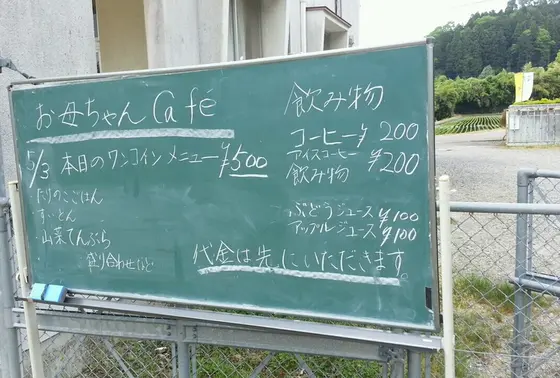 お母ちゃん Café
5/3 本日のワンコインメニュー ¥500
たけのこごはん
すいとん
山菜てんぷら
盛り合わせなど
飲み物
コーヒー ¥200
アイスコーヒー ¥200
飲み物
ぶどうジュース ¥100
アップルジュース ¥100
代金は先にいただきます。